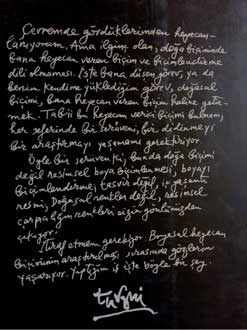 Çevremde gördüklerimden heyecan-
lanıyorum. Ama ilginç olan, doğa biçiminde
bana heyecan veren biçim ve biçimlendirme
dili olmaması. İşte bana düşen görev, ya da
benim kendime yüklediğim görev, doğasal
biçimi, bana heyecan veren biçim haline getir-
mek. Tabii bu heyecan verici biçimi bulmam,
her seferinde bir serüveni, bir didinmeyi
bir araştırmayı yaşamamı gerektiriyor
Öyle bir serüven ki, bunda doğa biçimi
değil resimsel boya biçimlenmesi, boyayı
biçimlendirme, tasvir değil, iç yaşantı
resmi, Doğasal renkler değil, resimsel
çarpıcılığın renkleri ağır
çıkıyor.
İtiraf etmem gerekiyor. Boyasal heyecan
biçiminin araştırılması sırasında gözlerim
yaşarıyor. Yaptığım iş işte böyle bir şey.